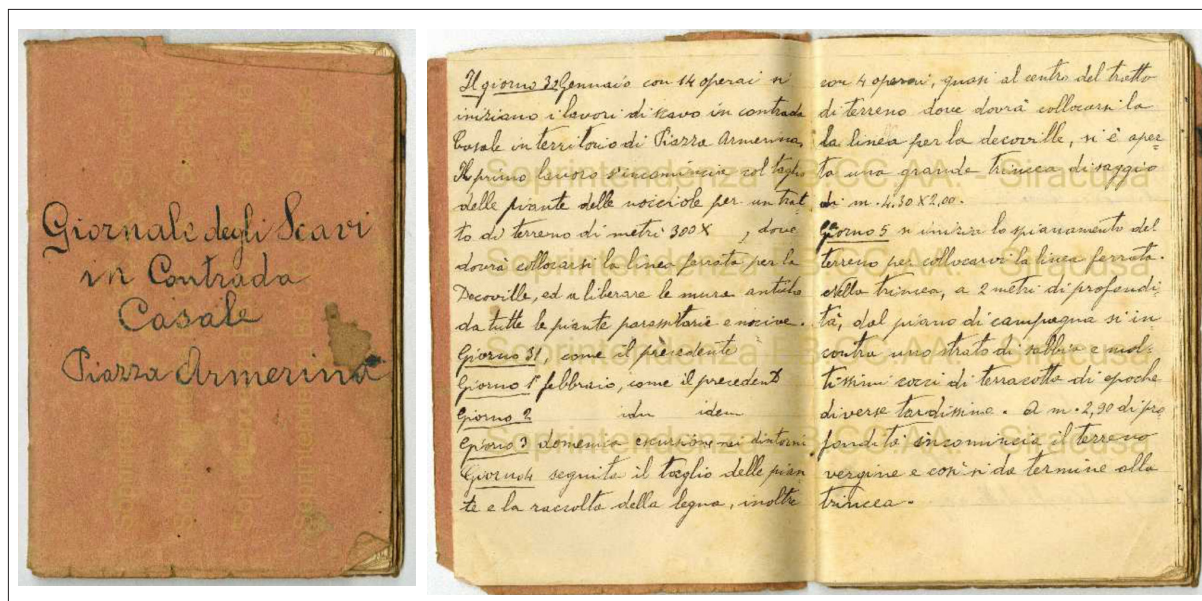 Giornale degli Scavi
in Contrada
Casale
Piazza Armerina
Il giorno Gennaio con 14 operai si
iniziano i lavori di scavo in contrada
Casale in territorio di Piazza Armerina,
Il primo lavoro s'incomincia col taglio
delle piante delle nocciole per un trat-
to di terreno di metri 300 X , dove
dovrà collocarsi la linea ferrata per la
Decoville, ed a liberare le mura antiche
da tutte le piante parassitarie e nocive.
Giorno 31, come il precedente
Giorno 1° febbraio, come il precedente
Giorno 2 idem
Giorno 3 domenica escursione nei dintorni
Giorno 4 seguita il taglio delle pian
te e la raccolta della legna, inoltre
con 4 operai, quasi al centro del tratto
di terreno dove dovrà collocarsi la
la linea per la decoville, si è aper-
ta una grande trincea di saggio
di m. 4,30 X 2,00.
Giorno 5 si inizia lo spianamento del
terreno per collocarvi la linea ferrata.
Nella trincea, a 2 metri di profondi-
tà, dal piano di campagna si in
contra uno strato di sabbia e mol-
tissimi cocci di terracotta di epoche
diverse tardissime. A m. 2,90 di pro
fondità incomincia il terreno
vergine e così si da termine alla
trincea.
Soprintendenza BB.CC.AA. - Siracusa